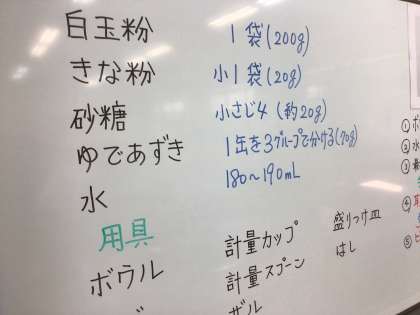 白玉粉 1袋(200g)
きな粉 小1袋(20g)
砂糖 小さじ4(約20g)
ゆであずき 1缶を3グループで分ける(70g)
水 180~190mL
用具
ボウル 計量カップ 盛りつけ皿
計量スプーン はし
ザル
①ボ
②水
③
④
⑤